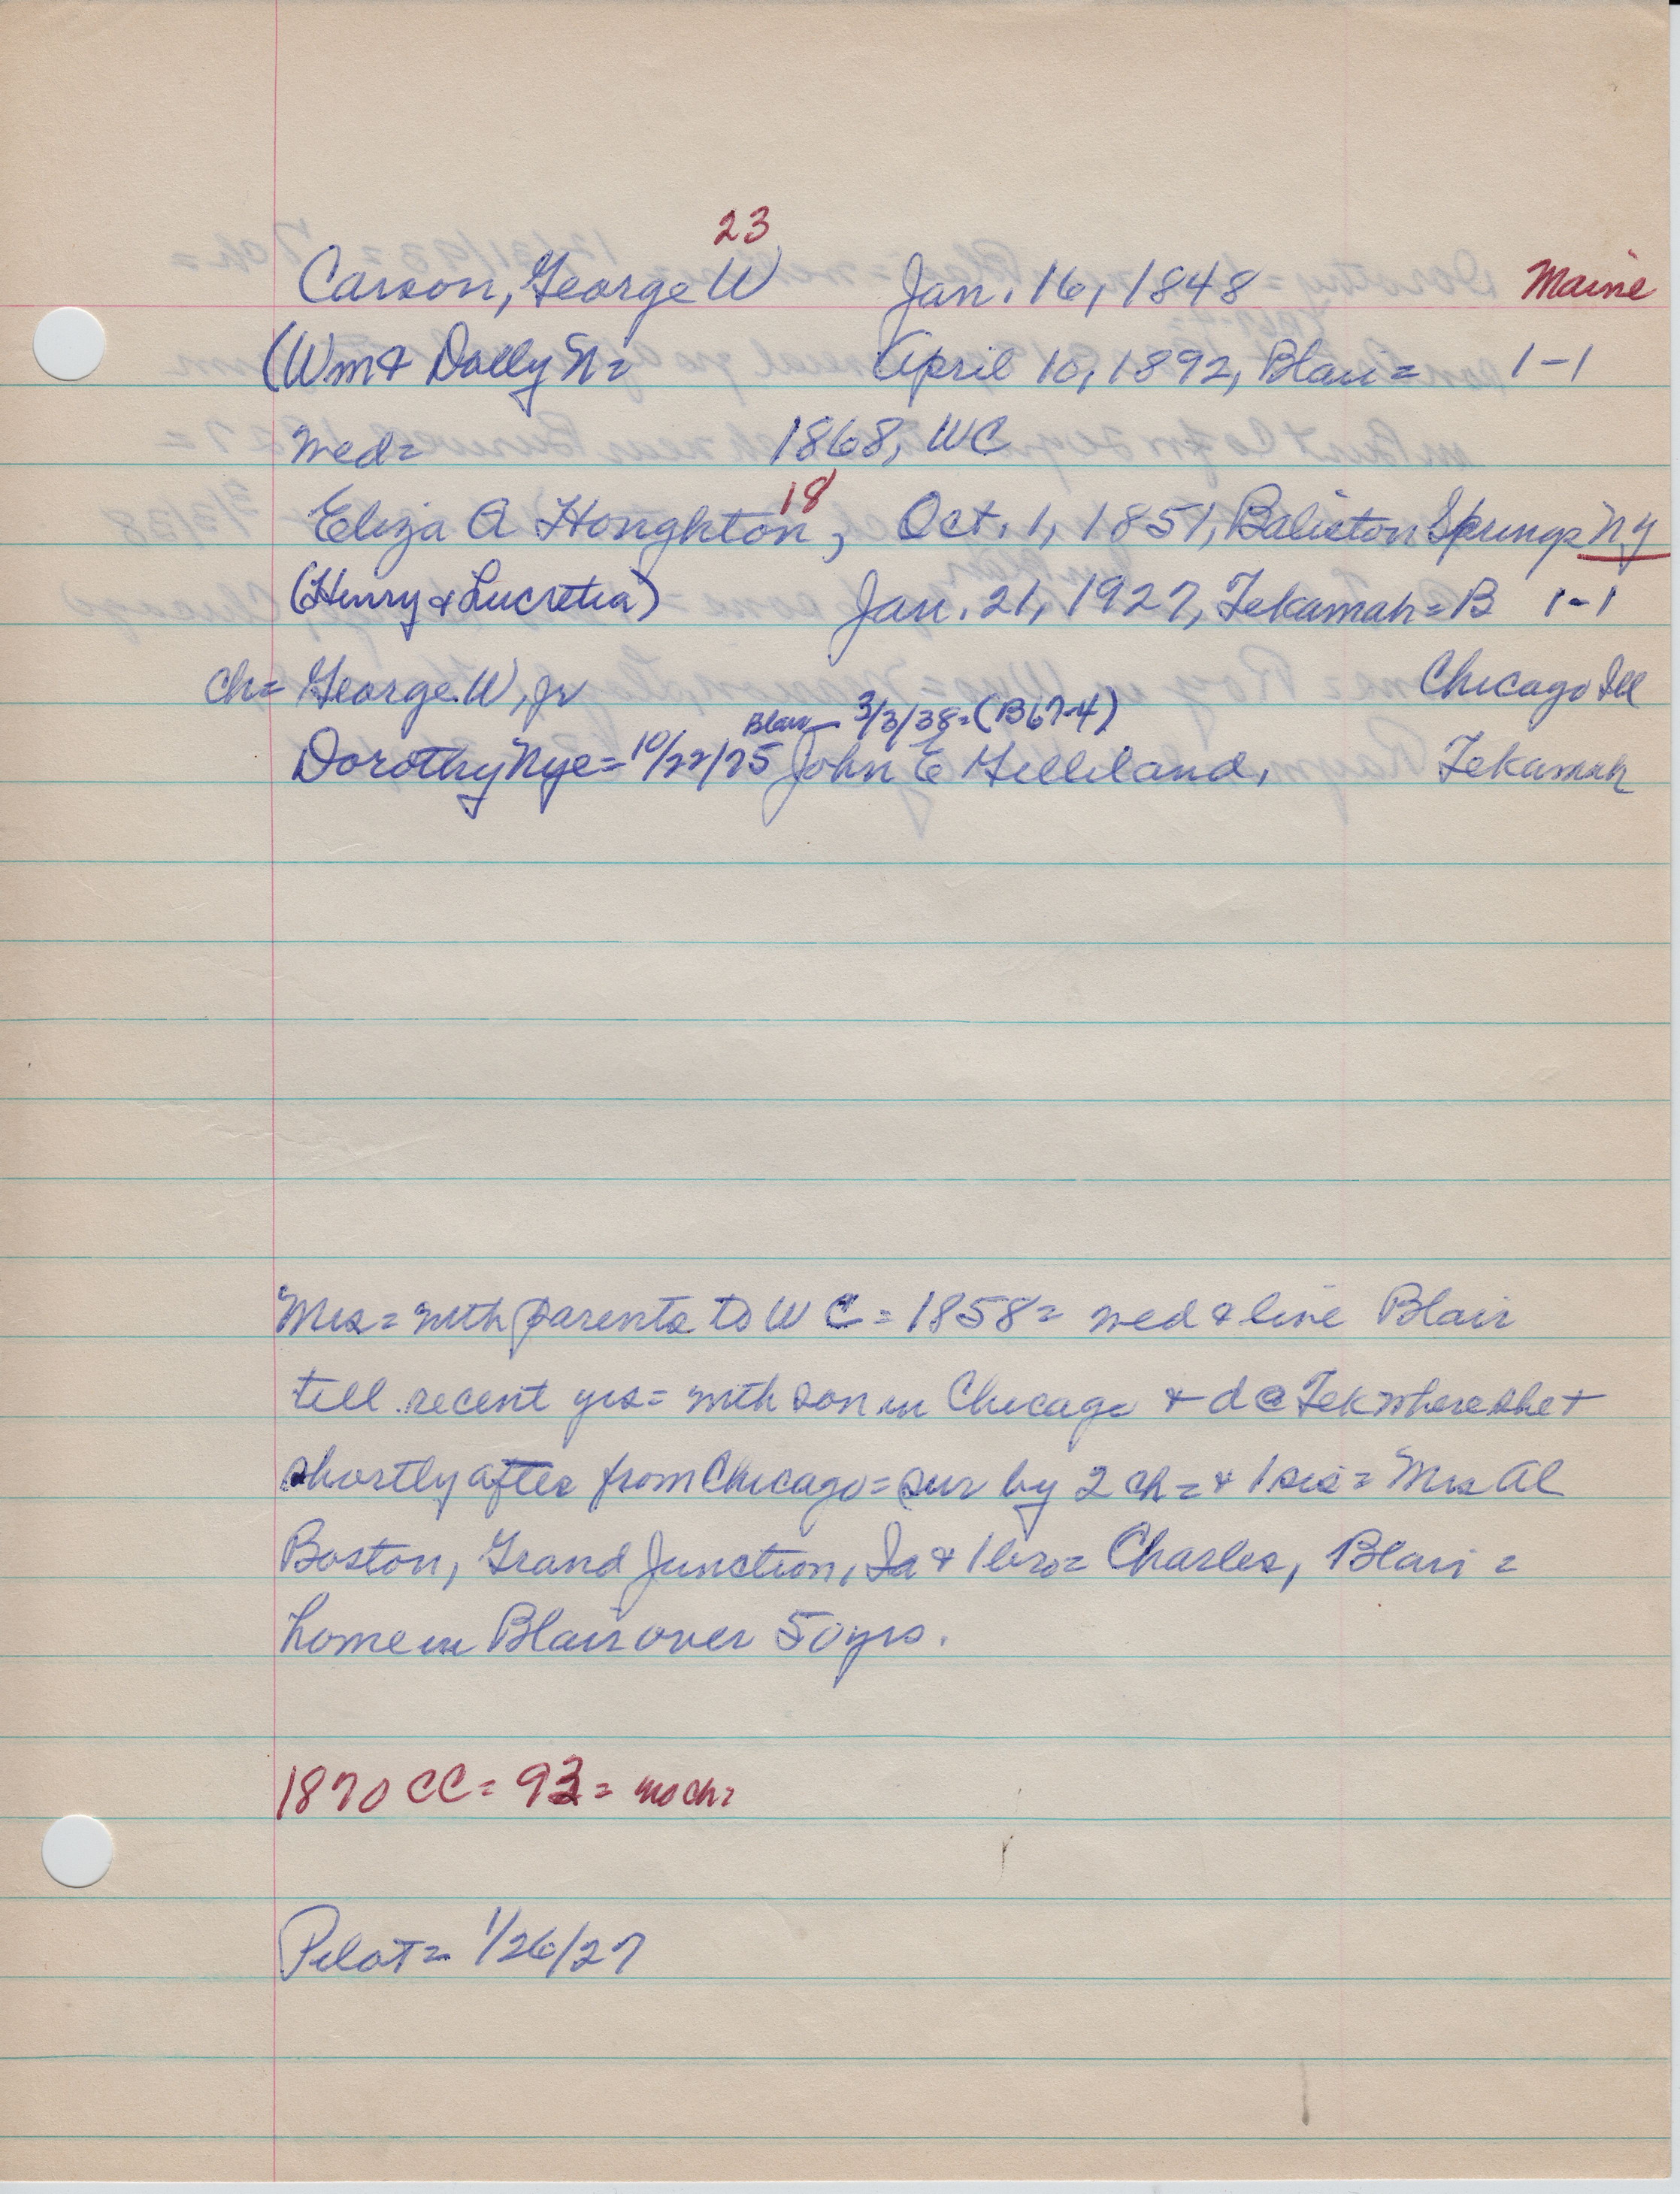 23
Carson, George W Jan. 16, 1848 Maine
(Wm & Dolly N= April 10, 1892, Blair= 1-1
wed= 1868, WC
18
Eliza A Houghton, Oct. 1, 1851, Balieton Springs NY
(Henry & Lucretia) Jan. 21, 1927, Tekamah=B 1-1
ch= George W, Jr Chicago Ill
Blair 3/3/38=(B67-4)
Dorothy Nye=10/22/75 John E Gilleland, Tekamah
Mrs= with parents to WC= 1858= wed & live Blair
till recent yrs= with son in Chicago & d @ Tek where she +
shortly after from Chicago= sur by 2 ch= & 1 sis= Mrs Al
Boston, Grand Junction, Ia & 1 bro= Charles, Blair=
home in Blair over 50 yrs.
1870 CC= 93= no ch=
Pilot= 1/26/27